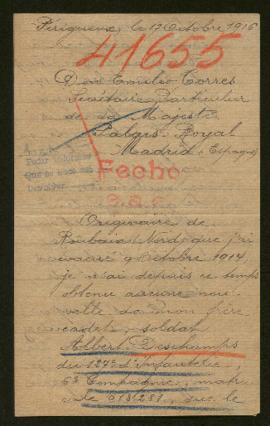 Périgueux, le 17 Octobre 1916
41655
Don Emilio Torres
Secrétaire Particulier
de sa Majesté
Palais Royal
Madrid (Espagne)
Pedir
Fecho
Originaire de
Roubaix (Nord) que j'ai
évacué 9 Octobre 1914,
je n'ai depuis ce temps
obtenu aucune nou-
velle de mon frère
cadet, soldat
Albert Deschamps
du 127e d'Infanterie,
6e Compagnie, matri-
cule